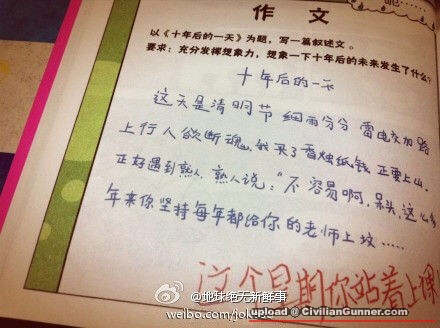 作 文
以《十年后的一天》为题，写一篇叙述文。
要求：充分发挥想象力，想象一下十年后的未来发生了什么？
十年后的一天
这天是清明节 细雨分分 雷电交加 路
上行人欲断魂，我买了香烛纸钱 正要上山，
正好遇到熟人，熟人说："不容易啊，呆头，这么多
年来你坚持每年都给你的老师上坟……
这个星期你站着上课
@地球绝无新鲜事
weibo.com/jokes8
upload @ CivilianGunner.com